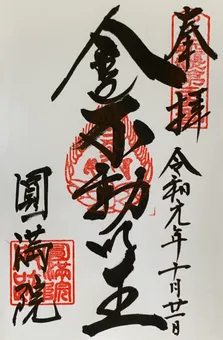 奉拝
令和元年十月廿一日
金色不動明王
圓満院